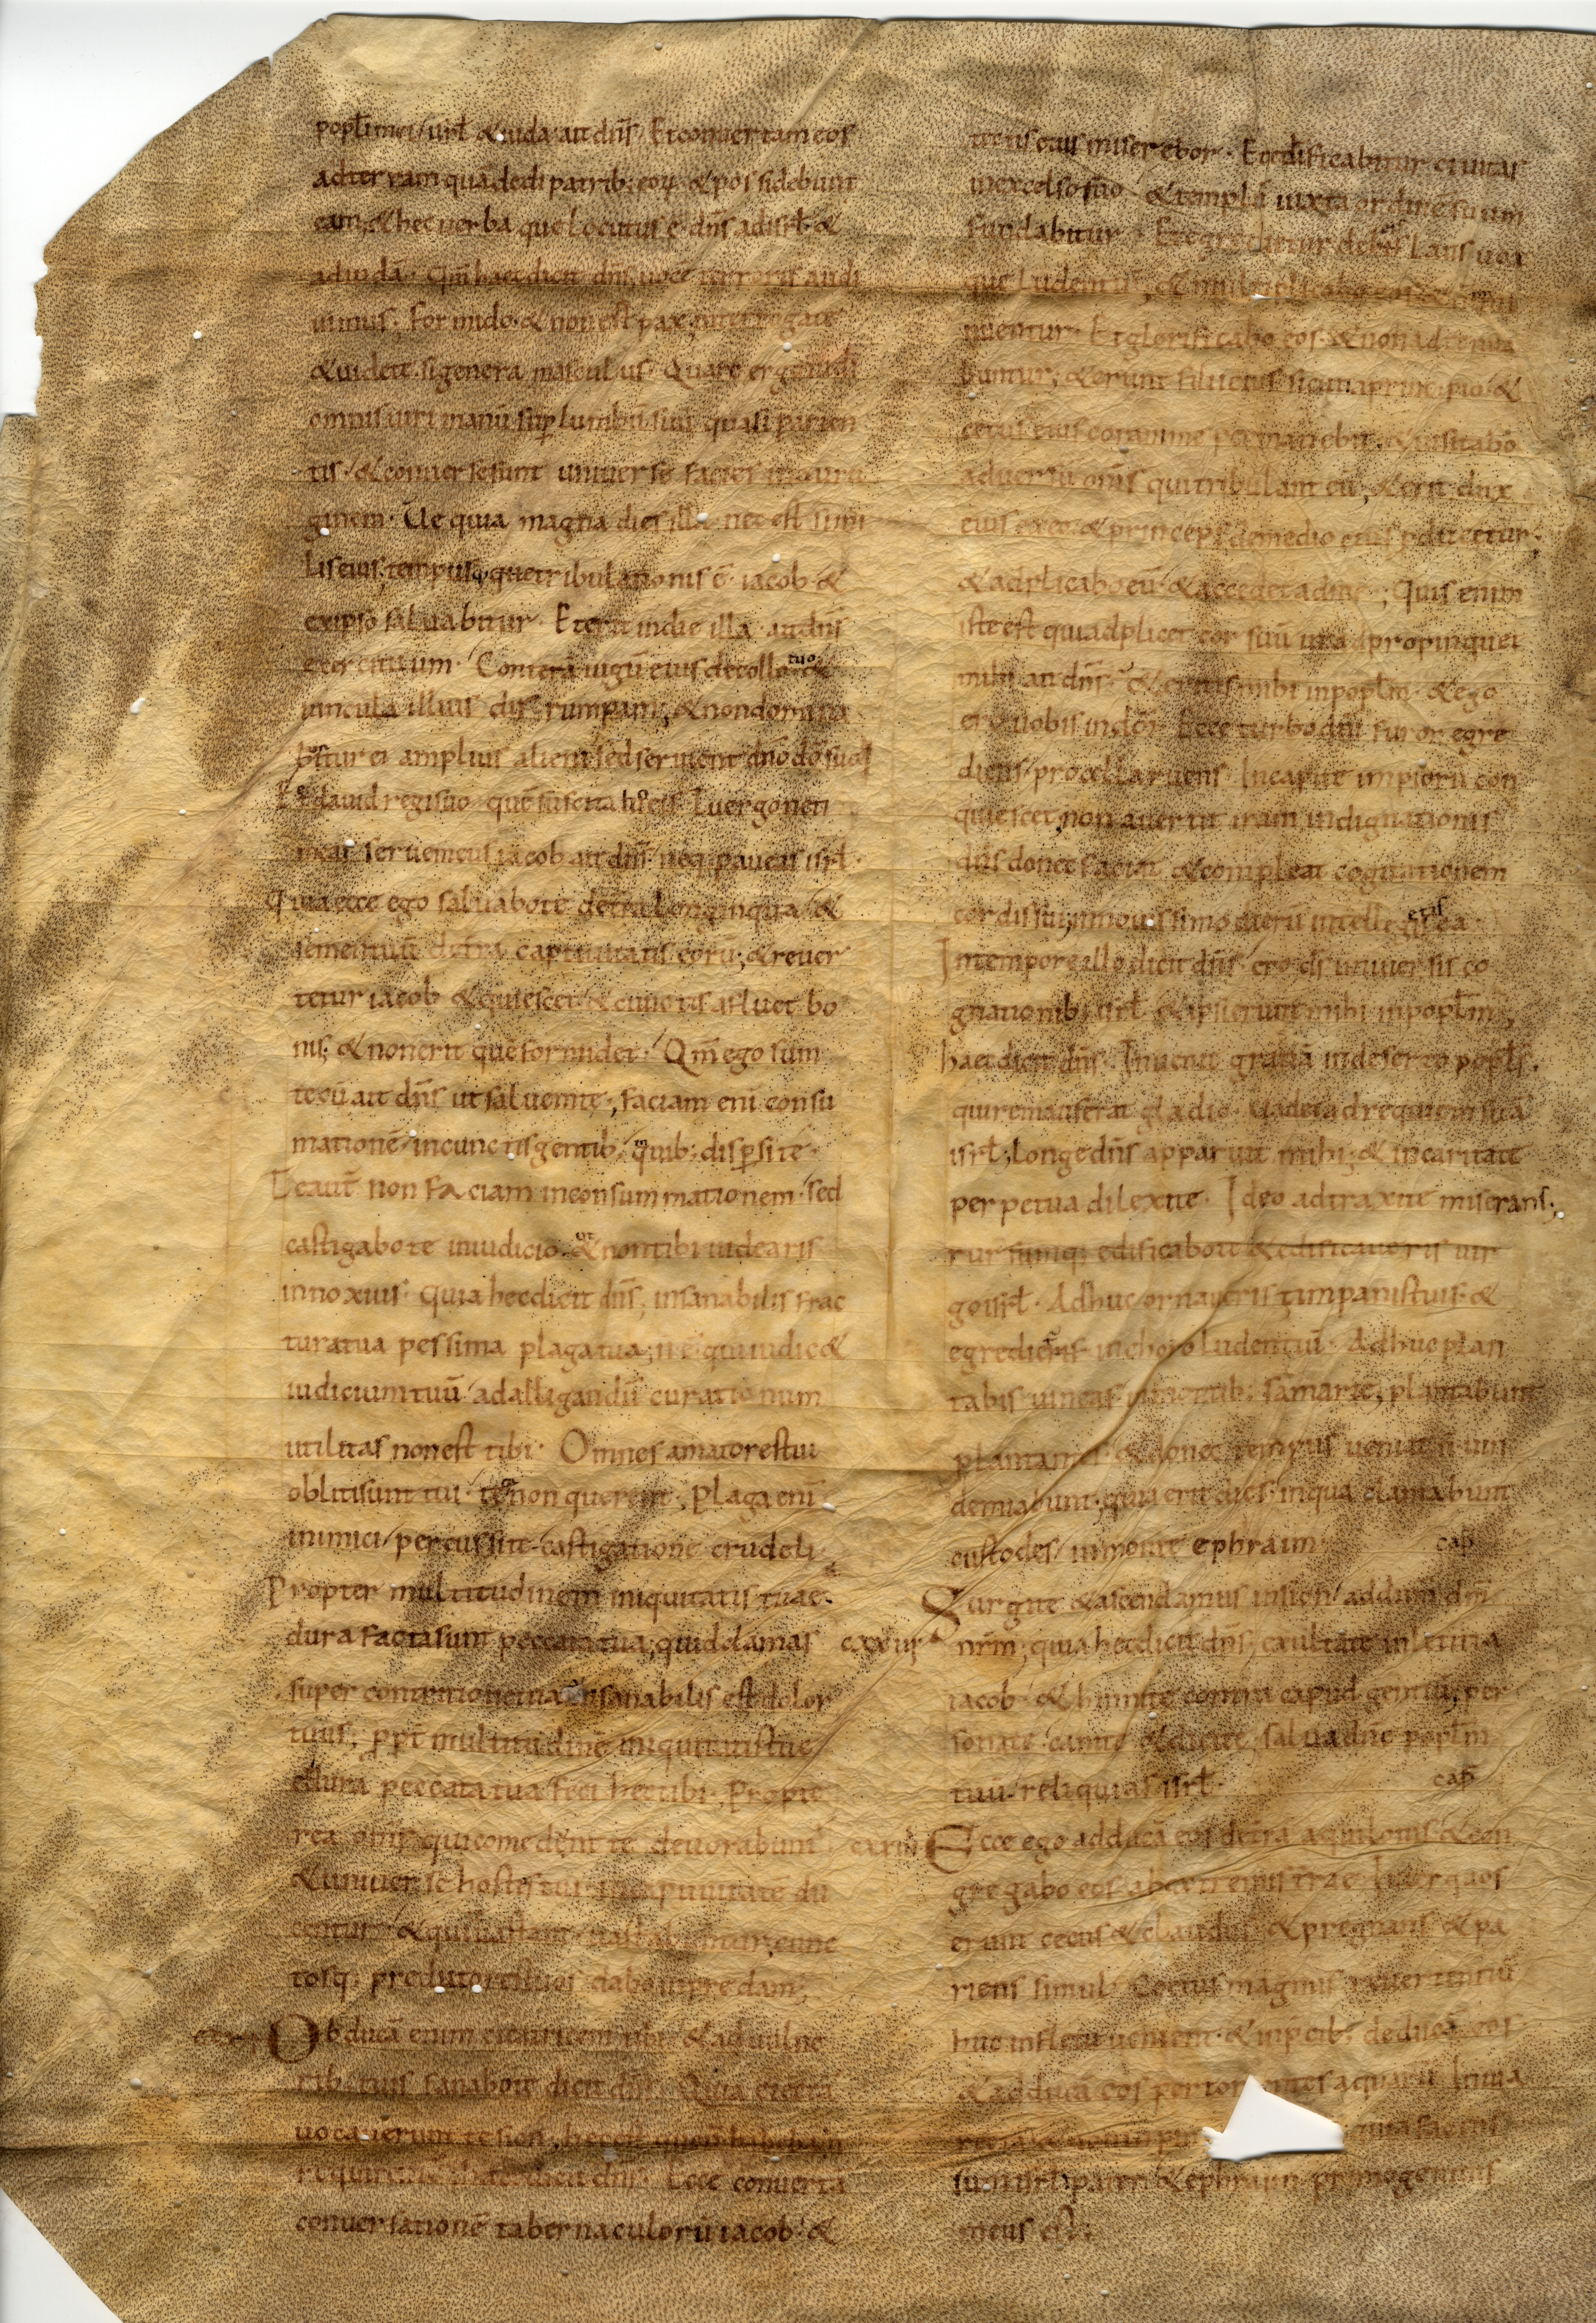 popl̄i mei / isrl̄ & iuda ait dn̄s. Et conuertam eos
ad terram quā dedi patrib; eoꝝ. & possidebunt
eam; & hec uerba que locutus ē dn̄s ad isrl̄. &
ad iudā. Qm̄ haec dicit dn̄s. uocē terroris audi
uimus. formido. & non est pax. interrogate
& uidete. si generat masculus. Quare ergo uidi
omnis uiri manū sup lumbū suū quasi parien
tis. & conuersę sunt uniuersę facies in auru
ginem. Ue quia magna dies illa nec est simi
lis eius. tempusque tribulationis ē iacob. &
ex ipso saluabitur. Et erit in die illa ait dn̄s
exercituum. Conterā iugū eius de collo tuo &
uincula illius disrumpam; & non domina
buntur ei amplius alieni. sed seruient dn̄o dō suo
Et dauid regi suo quē suscitabo eis. Tu ergo ne ti
meas serue meus iacob ait dn̄s. neq; paueas isrl̄.
Quia ecce ego saluabo te de trā longinqua / &
semen tuū de trā captiuitatis eorū; & reuer
tetur iacob & quiescet / & cunctis affluet bo
nis; & non erit quē formidet. Qm̄ ego sum
tecū ait dn̄s ut saluem te; faciam enī consu
mationē in cunctis gentib; in quib; dispersi te.
Te aut̄ non faciam in consummationem. sed
castigabo te in iudicio. ut & non tibi uidearis
innoxius. Quia hec dicit dn̄s; insanabilis frac
tura tua pessima plaga tua; n̄ ē qui iudic&
iudicium tuū / ad alligandū curationum
utilitas non est tibi. Omnes amatores tui
obliti sunt tui. te non querent. Plaga enī
inimici / percussi te castigatione crudeli.
Propter multitudinem iniquitatis tuae.
dura facta sunt peccata tua; quid clamas
super contritione tua? insanabilis est dolor
tuus; ppt̄ multitudinē iniquitatis tuę
& dura peccata tua feci hec tibi. Propte
rea omīs qui comedent te deuorabunt̄
& uniuersi hostes tui in captiuitatē du
centur. & qui te uastant uastabuntur; cunc
tosq; predatores tuos dabo in predam;
Obducā enim cicatricem tibi. & a uulne
rib; tuis sanabo te dicit dn̄s. Quia eiectā
uocauerunt te sion; hec est que n̄ habebat
requirentē. haec dicit dn̄s. Ecce conuertā
conuersationē tabernaculorū iacob. &
tectis eius miserebor. Et ędificabitur ciuitas
in excelso suo. & templū iuxta ordinē suum
fundabitur. Et egredietur de eis laus uox
que ludentiū; & multiplicabo eos & n̄ mi
nuentur. Et glorificabo eos. & non adtenua
buntur; & erunt filii eius sicut a principio. &
cetus eius coram me permanebit. & uisitabo
aduersū omīs qui tribulant eū; & erit dux
eius ex eo. & princeps de medio eius pducetur;
& adplicabo eū. & accedet ad me; Quis enim
iste est qui adplicet cor suū ut adpropinquet
mihi ait dn̄s. & eritis mihi in popl̄m. & ego
ero uobis in dm̄. Ecce turbo dn̄i furor egre
diens / procella ruens. In capite impiorū con
quiescet; non auertit iram indignationis
dn̄s donec faciat & compleat cogitationem
cordis sui; in nouissimo dierū intellegetis ea
In tempore illo dicit dn̄s. ero ds̄ uniuersis co
gnationib; isrl̄. & ipsi erunt mihi in popl̄m;
haec dicit dn̄s. Inuenit gratiā in deserto popl̄s.
qui remanserat gladio. uadet ad requiem suā
isrl̄; Longe dn̄s apparuit mihi; & in caritate
perpetua dilexi te. Ideo adtraxi te miserans;
rursumq; edificabo te & edificaueris uir
go isrl̄. Adhuc ornaueris timpanis tuis. &
egredieris in choro ludentiū. Adhuc plan
tabis uineas in montib; samarię; plantabunt
plantantes. & donec tempus ueniat n̄ uin
demiabunt; quia erit dies. in qua clamabunt
custodes / in monte ephraim. cap̄
Surgite & ascendamus in sion / ad dnm̄ dm̄
cxxuii nrm̄; quia hec dicit dn̄s; exultate in letitia
iacob. & hinnite contra capud gentiū; per
sonate. canite & dicite; salua dn̄e popl̄m
tuū / reliquias isrl̄. cap̄
Ecce ego adducā eos de trā aquilonis & con
gregabo eos ab extremis trae. Inter quos
erunt cecus & claudus. & pregnans & pa
riens simul. Coetus magnus reuertentiū
huc in fletu uenient. & in p̄cib; deducā eos.
& adducā eos per torrentes aquarū In uia
recta & non quia factus
sum isrl̄ pater. & ephraim primogenitus
meus est;